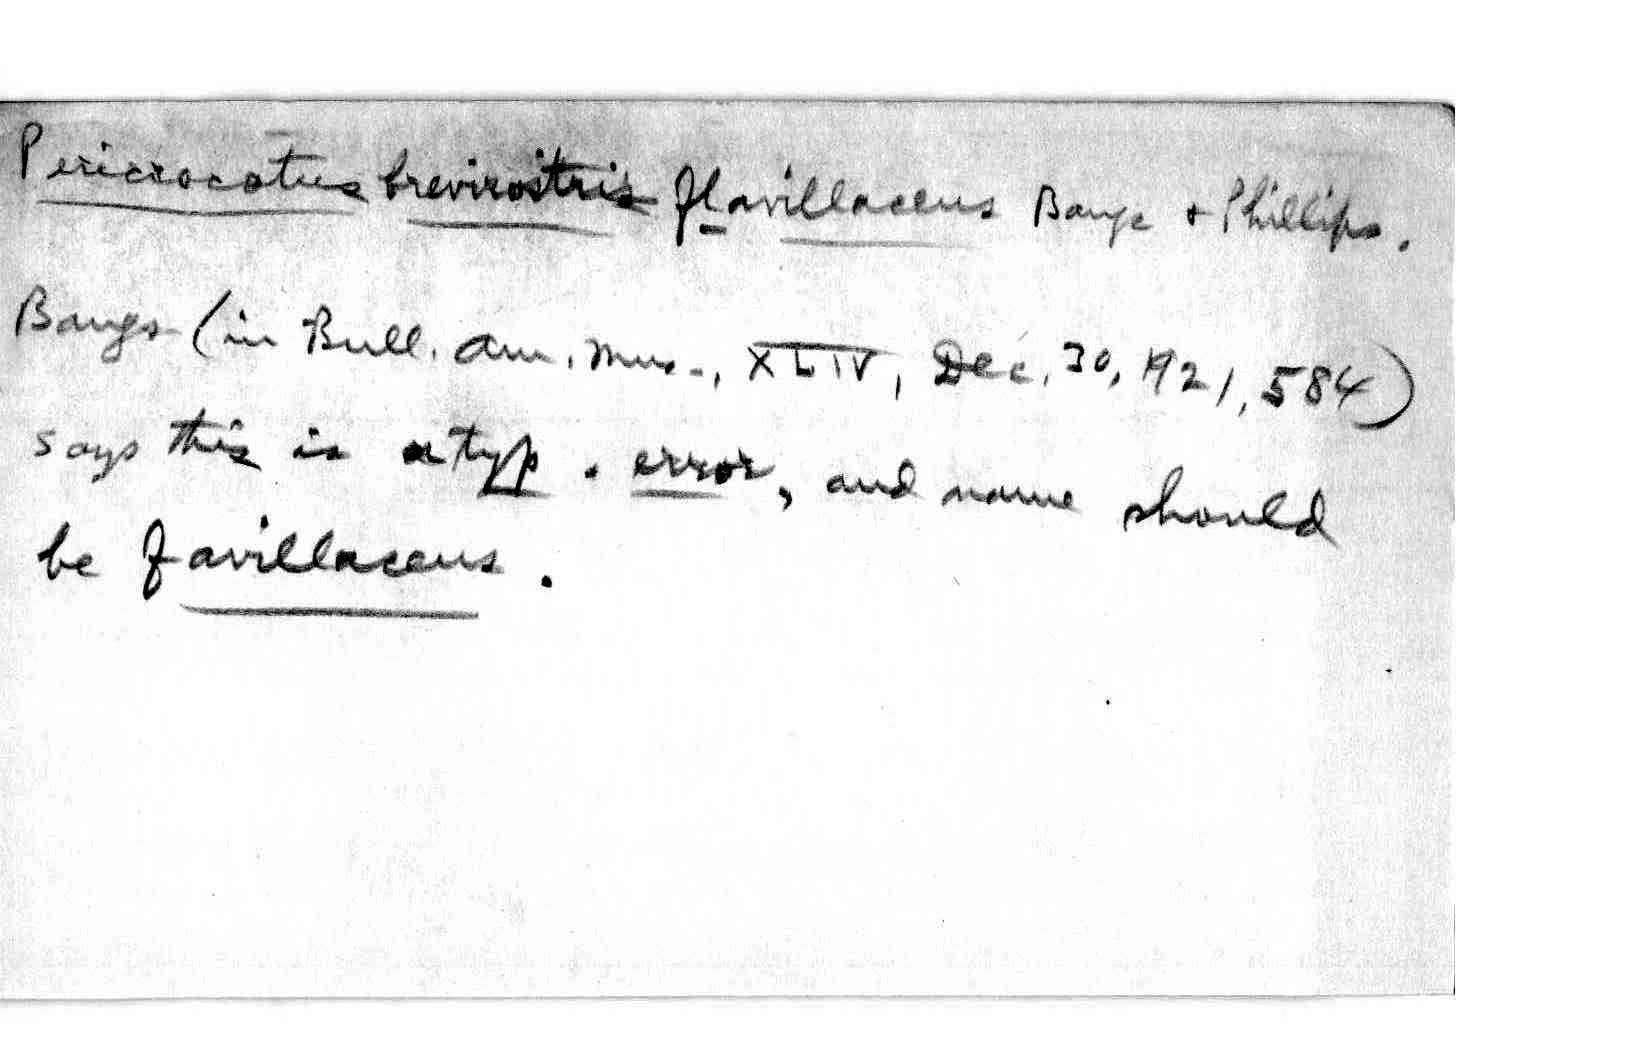 Pericrocotus brevirostris flavillaceus Bangs + Phillips.
Bangs (in Bull. Am. Mus., XLIV, Dec. 30, 1921, 584)
says this is a typ. error, and name should
be favillaceus.